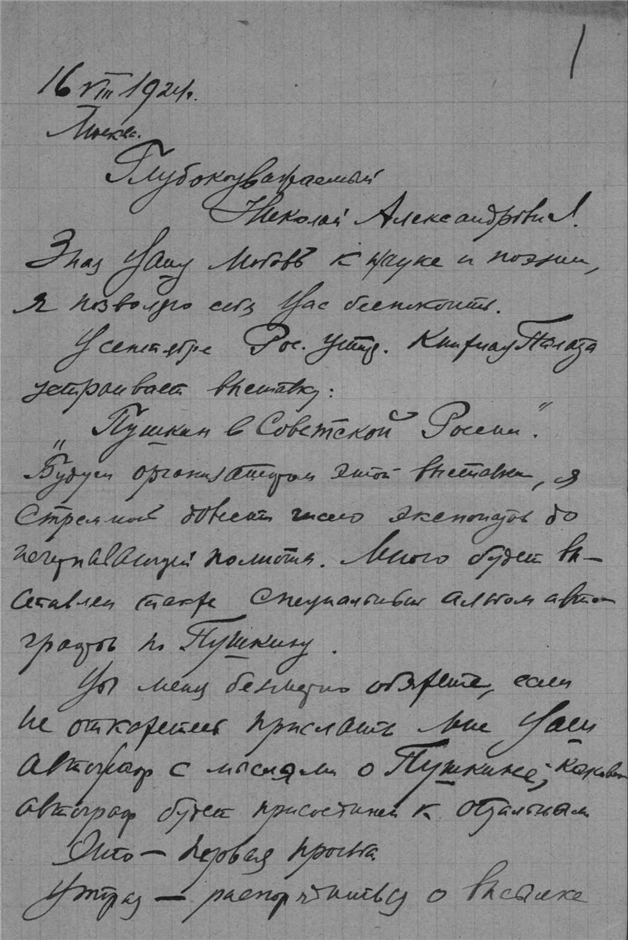 1
16 VIII 1924г.
Москва.
Глубокоуважаемый
Николай Александрович!
Зная Вашу любовь к науке и поэзии,
я позволяю себе Вас беспокоить.
В сентябре Рос. Центр. Книжная Палата
устраивает выставку:
"Пушкин в Советской России".
Будучи организатором этой выставки, я
стремлюсь довести число экспонатов до
исчерпывающей полноты. Мною будет вы-
ставлен также специальный альбом авто-
графов по Пушкину.
Вы меня безмерно обяжете, если
не откажетесь прислать мне Ваш
автограф с мыслями о Пушкине, каковой
автограф будет присоединен к остальным
Это — первая просьба
Вторая — распорядиться о высылке